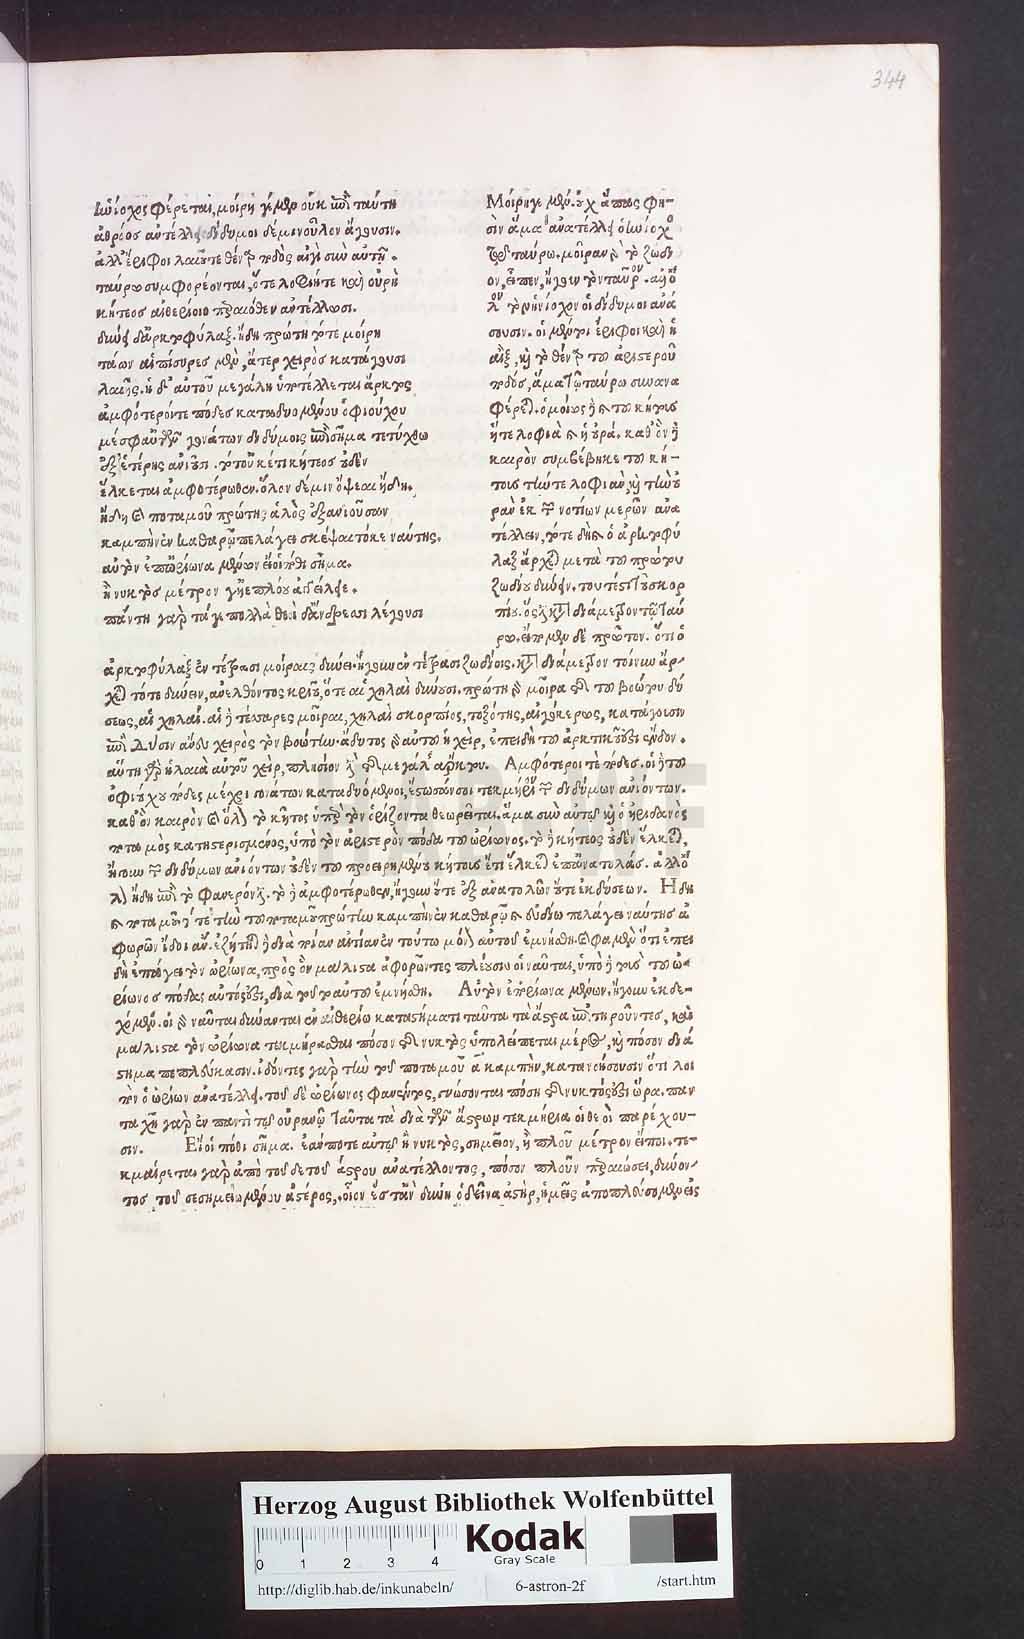 ἡνίοχος φέρεται, μοίρη γέ μὲν οὐκ ἐπὶ ταύτη
ἀθρόος ἀντέλλει δίδυμοι δέ μιν οὖλον ἄγουσιν.
ἀλλ' ἔριφοι λαιοῦτε θέναρ ποδὸς αἰγὶ σὺν αὐτῇ.
ταύρω συμφορέονται, ὅτε λοφίητε καὶ οὐρὴ
κήτεος αἰθερίοιο περαιόθεν ἀντέλλωσι.
δύνει δ' ἀρκτοφύλαξ. ἤδη πρώτη τότε μοίρη
τάων αἱ πίσυρες μὲν, ἄτερ χειρὸς κατάγουσι
λαιῆς. ἡ δ' αὐτοῦ μεγάλη ὑποτέλλεται ἄρκτος
ἀμφότεροίτε πόδες καταδυομένου ὀφιούχου
μέσφ' αὐτῶν γονάτων διδύμοις ἐπὶ σῆμα τετύχθω
ἐξ ἑτέρης ἀνιοῦσι. τότ' οὐκέτι κήτεος οὐδὲν
ἕλκεται ἀμφοτέρωθεν. ὅλον δέ μιν ὄψεαι ἤδη.
ἤδη καὶ ποταμοῦ πρώτης ἁλὸς ἐξανιοῦσαν
καμπὴν ἐν καθαρῷ πελάγει σκέψαιτό κε ναύτης.
αὐτὸν ἐπ' ὠρίωνα μένων εἴοἱ πόθι σῆμα.
ἢ νυκτὸς μέτρον γ' ἠὲ πλόου ἀγγείλειε.
πάντη γὰρ τάγε πολλὰ θεοὶ δ' ἄνδρεσσι λέγουσι
Μοίρηγε μέν. οὐχ ἅπας φη-
σὶν ἅμα ἀνατέλλει ὁ ἡνίοχος
τῷ ταύρω. μοῖραν δὲ τὸ ζωδι
ον, εἶπεν, ἤγουν τὸν ταῦρον. ἀλλ' ὅ
λον τὸν ἡνίοχον οἱ δίδυμοι ἀνά
γουσιν. οἱ μέντοι ἔριφοι καὶ ἡ
αἲξ, καὶ τὸ θέναρ τοῦ ἀριστεροῦ
ποδὸς, ἅμα τῷ ταύρω συνανα
φέρεται. ὁμοίως δὲ καὶ τοῦ κήτους
ἥτε λοφιὰ καὶ ἡ οὐρά. καθ' ὃν δὲ
καιρὸν συμβέβηκε τοῦ κή-
τους τήντε λοφιὰν, καὶ τὴν οὐ
ρὰν ἐκ τῶν νοτίων μερῶν ἀνα
τέλλειν, τότε δὴ καὶ ὁ ἀρκτοφύ
λαξ ἄρχεται μετὰ τοῦ πρώτου
ζωδίου δύνειν. τουτέστι τοῦ σκορ
πίου. ὅς ἐστι κατὰ διάμετρον τῷ ταύ
ρω. εἴπομεν δὲ πρῶτον. ὅτι ὁ
ἀρκτοφύλαξ ἐν τέτρασι μοίραις δύνει. ἤγουν ἐν τέτρασι ζωδίοις. κατὰ διάμετρον τοίνυν ἄρ-
χεται τότε δύνειν, ἀνελθόντος κριοῦ, ὅτε αἱ χηλαὶ δύνουσι. πρώτη δὲ μοῖρα ἐστὶ τοῦ βοώτου δύ
σεως, αἱ χηλαί. αἱ δὲ τέσσαρες μοῖραι, χηλαὶ σκορπίος, τοξότης, αἰγόκερως, κατάγουσιν
ἐπὶ δύσιν ἄνευ χειρὸς τὸν βοώτην. ἄδυτος δὲ αὐτοῦ ἡ χεὶρ, ἐπειδὴ τοῦ ἀρκτικοῦ ἐστὶν ἔνδον.
αὕτη δὲ ἡ λαιὰ αὐτοῦ χεὶρ, πλησίον ἐστὶ τῆς μεγάλης ἄρκτου. Ἀμφότεροι τὲ πόδες. οἱ δὲ τοῦ
ὀφιούχου πόδες μέχρι γονάτων καταδυόμενοι, ἔστωσάν σοι τεκμήριον τῶν διδύμων ἀνιόντων.
καθ' ὃν καιρὸν καὶ ὅλον τὸ κῆτος ὑπὲρ τὸν ὁρίζοντα θεωρεῖται. ἅμα σὺν αὐτῷ καὶ ὁ ἠριδανὸς
ποταμὸς κατηστερισμένος, ὑπὸ τὸν ἀριστερὸν πόδα τοῦ ὠρίωνος. τὸ δὲ κήτεος οὐδὲν ἕλκεται,
ἤγουν τῶν διδύμων ἀνιόντων οὐδὲν τοῦ προειρημένου κήτους ἔτι ἕλκεται ἐπ' ἀνατολάς. ἀλλ' ὅ
λον ἤδη ἐπὶ τὸ φανερόν ἐστι. τὸ δὲ ἀμφοτέρωθεν, ἤγουν οὔτε ἐξ ἀνατολῶν οὔτε ἐκ δύσεων. Ἤδη
καὶ ποταμοῦ. τότε τὴν τοῦ ποταμοῦ πρώτην καμπὴν ἐν καθαρῷ καὶ εὐδίω πελάγει ναύτης ἀ
φορῶν ἴδοι ἄν. ἐζήτηται δὲ διὰ ποίαν αἰτίαν ἐν τούτω μόνον αὐτοῦ ἐμνήσθη. καὶ φαμὲν ὅτι ἐπει
δὴ ἐπάγει τὸν ὠρίωνα, πρὸς ὃν μάλιστα ἀφορῶντες πλέουσιν οἱ ναῦται, ὑπὸ δὲ τοὺς τοῦ ὠ-
ρίωνος πόδας αὐτός ἐστι, διὰ τοῦτο αὐτοῦ ἐμνήσθη. Αὐτὸν ἐπ' ὠρίωνα μένων. ἤγουν ἐκδε-
χόμενος. οἱ δὲ ναῦται δύνανται ἐν αἰθερίω καταστήματι ταῦτα τὰ ἄστρα ἐπιτηροῦντες, καὶ
μάλιστα τὸν ὠρίωνα τεκμήρασθαι πόσον τῆς νυκτὸς ὑπολείπεται μέρος, καὶ πόσον διά
στημα πεπλεύκασιν. ἰδόντες γὰρ τὴν τοῦ ποταμοῦ α καμπὴν, κατανοήσουσιν ὅτι λοι
πὸν ὁ ὠρίων ἀνατέλλει. τοῦ δὲ ὠρίωνος φανέντος, γνώσονται πόση τῆς νυκτός ἐστι ὥρα. παν
ταχῆ γὰρ ἐν παντὶ τῷ οὐρανῷ ταῦτα τὰ διὰ τῶν ἄστρων τεκμήρια οἱ θεοὶ παρέχου-
σιν. Εἴοἱ πόθι σῆμα. ἐάν ποτε αὐτῷ ἢ νυκτὸς, σημεῖον, ἢ πλοῦ μέτρον εἴποι. τε-
κμαίρεται γὰρ ἀπὸ τοῦ δε τοῦ ἄστρου ἀνατέλλοντος, πόσον πλοῦν περαιώσει, δύνον-
τος τοῦ σεσημειωμένου ἀστέρος, οἷον ἐς τ' ἂν δύνη ὁ δεῖνα ἀστὴρ, ἡμεῖς ἀποπλεύσομεν εἰς
344
HAB WF
Herzog August Bibliothek Wolfenbüttel
0 1 2 3 4
Kodak
Gray Scale
http://diglib.hab.de/inkunabeln/ 6-astron-2f /start.htm